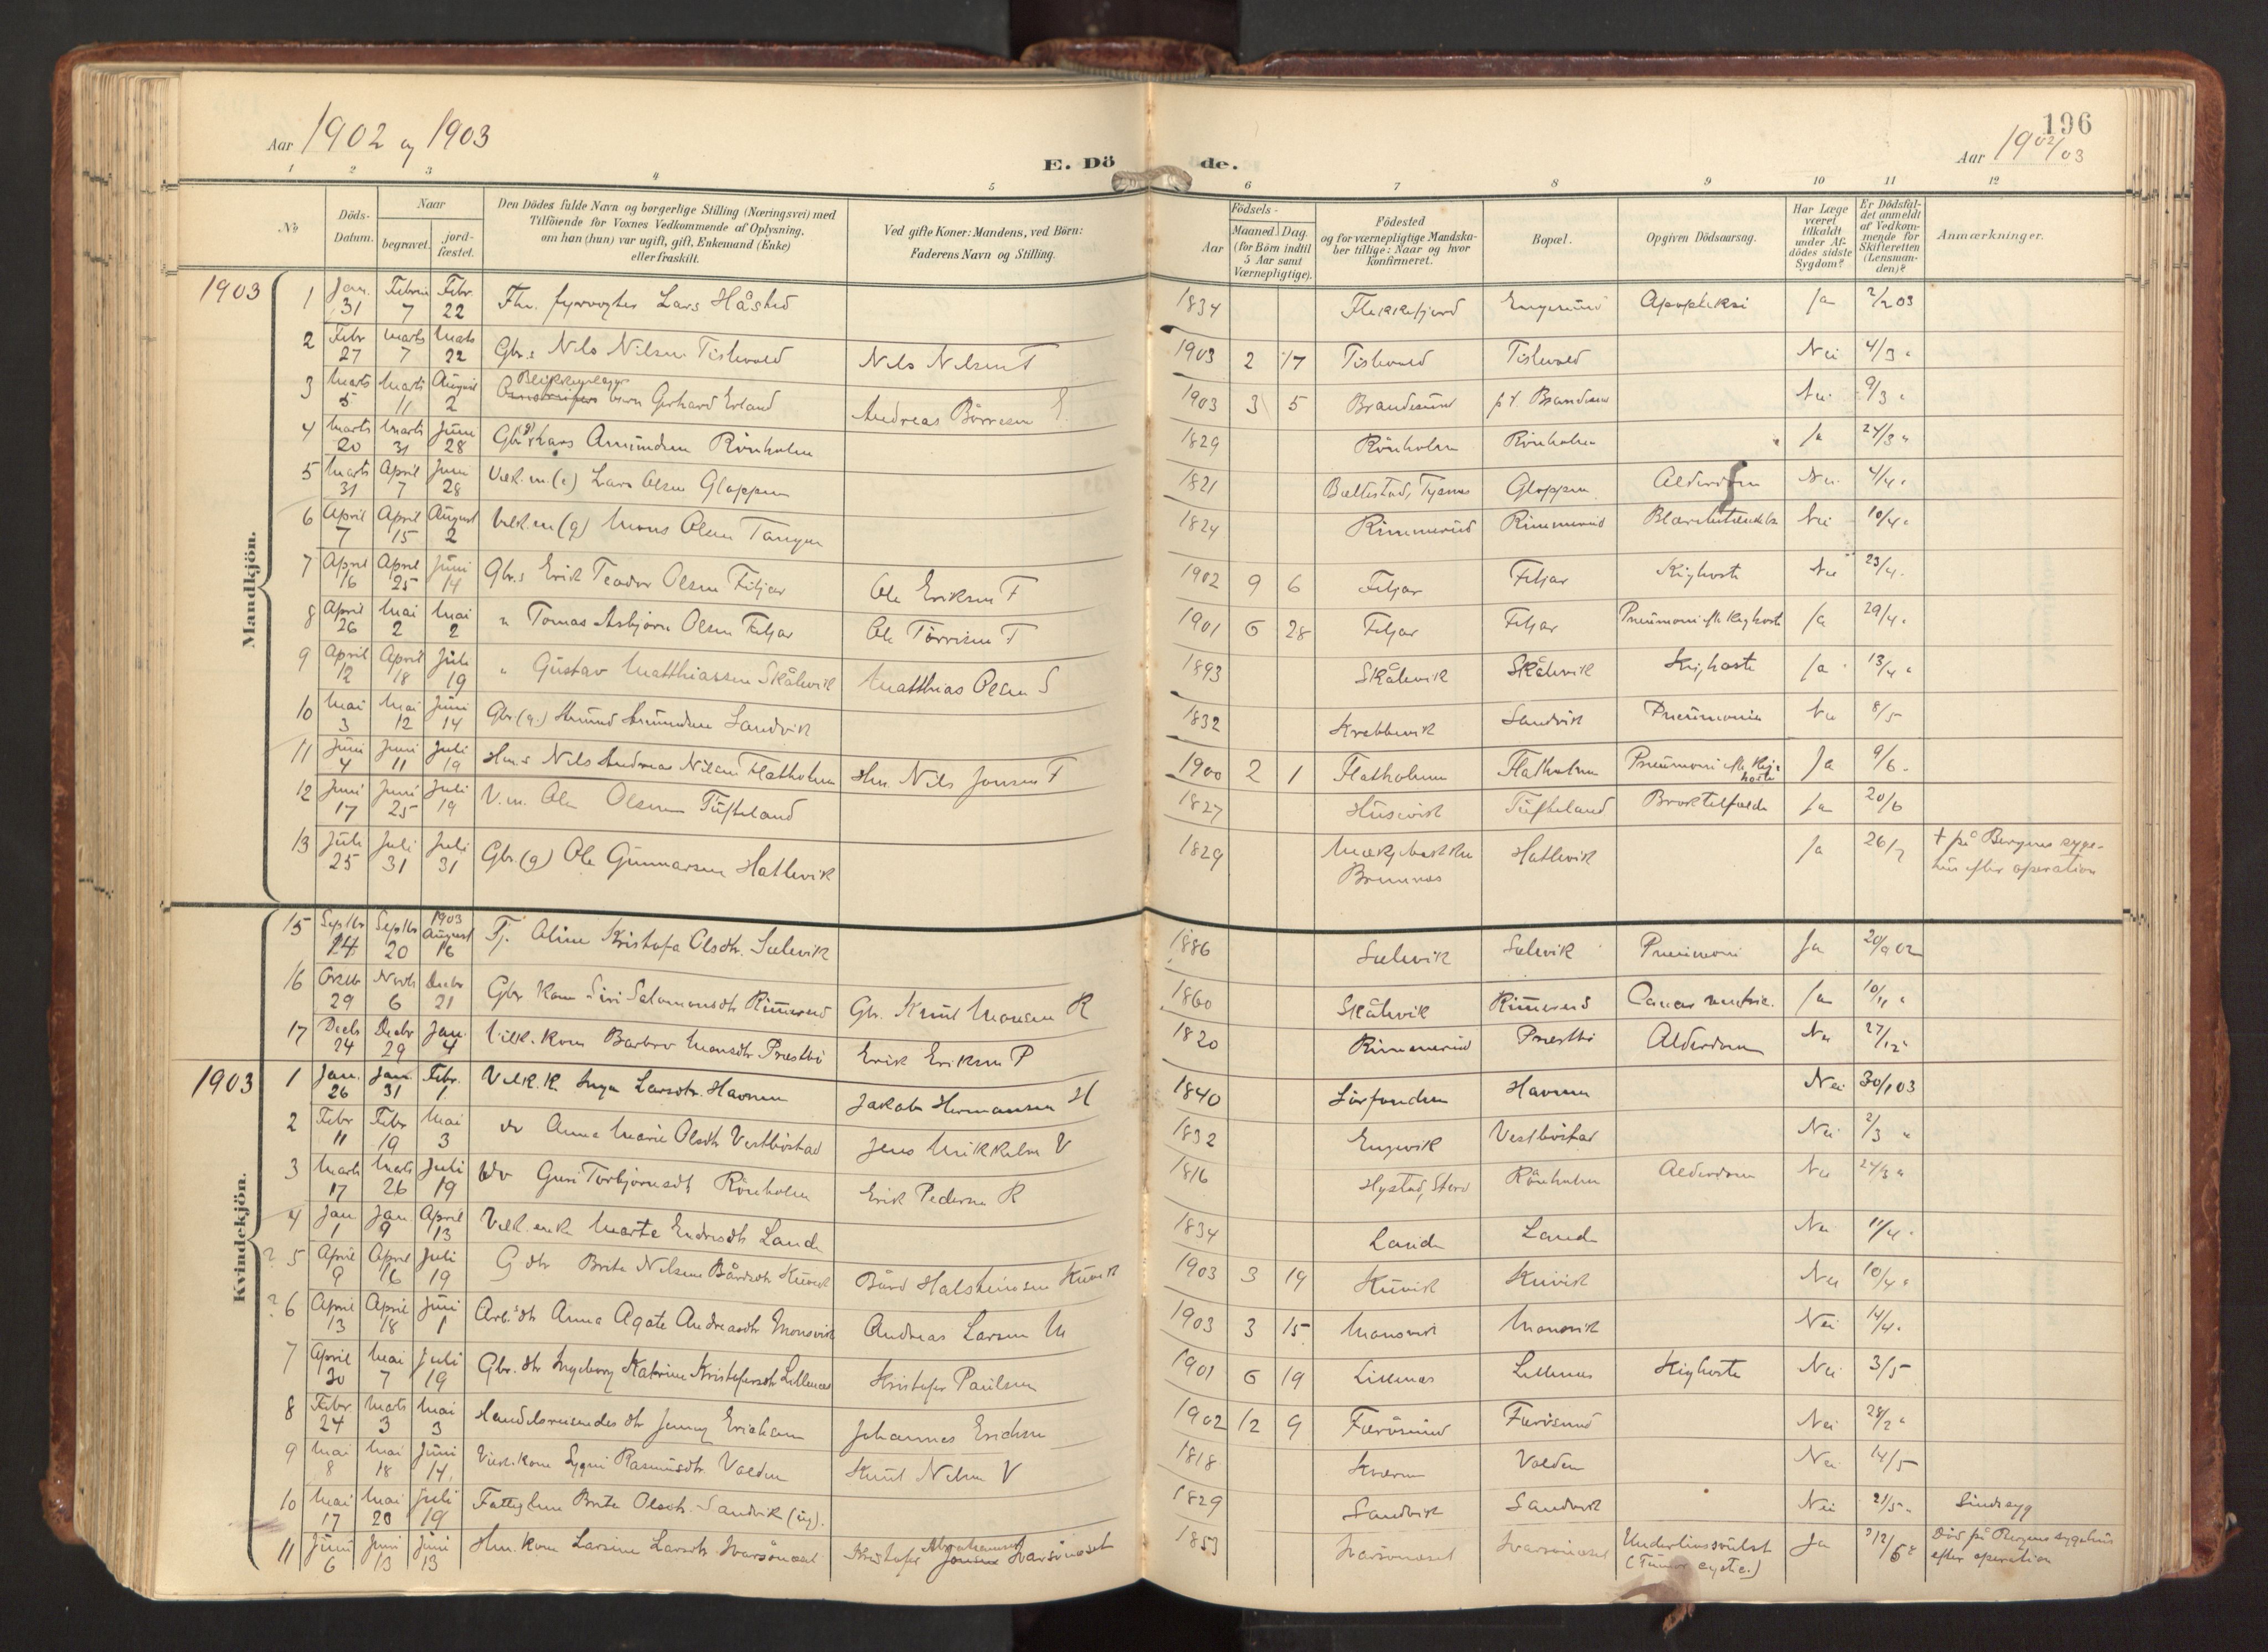 196
Aar 1902 og 1903
Aar 1902/03
E. Dö de.
1 2 3 4 5 6 7 8 9 10 11 12
No
Döds-Datum.
Naar
begravet.
jord-fæstet.
Den Dödes fulde Navn og borgerlige Stilling (Næringsvei) med
Tilföiende for Voxnes Vedkommende af Oplysning,
om han (hun) var ugift, gift, Enkemand (Enke)
eller fraskilt.
Ved gifte Koner: Mandens, ved Börn:
Faderens Navn og Stilling.
Födsels-
Aar
Maaned. Dag.
(for Börn indtil
5 Aar samt
Værnepligtige).
Födested
og for værnepligtige Mandska-
ber tillige: Naar og hvor
konfirmeret.
Bopæl.
Opgiven Dödsaarsag.
Har Læge
været
tilkaldt
under Af-
dödes sidste
Sygdom?
Er Dödsfal-
det anmeldt
af Vedkom-
mende for
Skifteretten
(Lensman-
den)?
Anmærkninger.
Mandkjön.
1903 1 Jan. 31 Febr 7 Febr. 22 Fhv. fyrvogter Lars Håsted 1834 Flekkefjord Engesund Apopleksi Ja 2/2 03
2 Febr 27 Marts 7 Marts 22 Gbr.s Nils Nilsen Tislevold Nils Nilsen T 1903 2 17 Tislevold Tislevold Nei 4/3 "
3 Marts 5 Marts 11 August 2 barn Gerhard Erland Andreas Börresen E. 1903 3 5 Brandesund p.t. Brandesund Nei 9/3 "
4 Marts 20 Marts 31 Juni 28 Gbr (g) Lars Amundsen Rönholm 1829 Rönholm Rönholm Ja 24/3 "
5 Marts 31 April 7 Juni 28 Vilk.m. (e) Lars Olsen Gloppen 1821 Ballestad, Tysnes Gloppen Alderdom Nei 4/4 "
6 April 7 April 15 August 2 Vilk.m (g) Mons Olsen Tangen 1824 Rimmereid Rimmereid Nei 10/4 "
7 April 16 April 25 Juni 14 Gbr.s Erik Teodor Olsen Fitjar Ole Eriksen F 1902 9 6 Fitjar Fitjar Kighoste Nei 23/4.
8 April 26 Mai 2 Mai 2 " Tomas Asbjörn Olsen Fitjar Ole Törrisen F 1901 6 28 Fitjar Fitjar Pneumoni eft. Kighoste Ja 29/4 "
9 April 12 April 18 Juli 19 " Gustav Matthiassen Skålevik Matthias Olsen S 1893 Skålevik Skålevik Kighoste Ja 13/4 "
10 Mai 3 Mai 12 Juni 14 Gbr. (g.) Amund Amundsen Sandvik 1832 Krabbevik Sandvik Pneumonia Nei 8/5
11 Juni 4 Juni 11 Juli 19 Hm.s Nils Andreas Nilsen Flatholmen Hm. Nils Jonsen F 1900 2 1 Flatholmen Flatholmen Pneumoni eft. Kighoste Ja 9/6 "
12 Juni 17 Juni 25 Juli 19 V.m. Ole Olsen Tufteland 1827 Husevik Tufteland Broktilfælde Ja 20/6
13 Juli 25 Juli 31 Juli 31 Gbr. (g) Ole Gunnarsen Hatlevik 1829 Bremnes Hatlevik Ja 26/7 † på Bergens syge-
hus efter operation
Kvindekjön.
15 Septbr 14 Septbr 20 1903 August 16 Tj. Aline Kristofa Olsdtr. Sælevik 1886 Sælevik Sælevik Pneumoni Ja 20/9 02
16 Oktbr 29 Novbr 6 Decbr 21 Gbr kone Siri Salomonsdtr Rimmereid Gbr. Knut Monsen R 1860 Skålevik Rimmereid Cancer Ja 10/11 "
17 Decbr 24 Decbr 29 Jan. 4 Vilk. kone Barbro Monsdtr Præstbö Erik Eriksen P 1820 Rimmereid Præstbö Alderdom Nei 27/12 "
1903 1 Jan. 26 Jan. 31 Febr. 1 Vilk.k. Inga Larsdtr. Havnen Jakob Hermansen H 1840 Sörfonden Havnen Nei 30/1 03
2 Febr 11 Febr 19 Mai 3 do Anna Marie Olsdtr Vestböstad Jens Mikkelsen V 1832 Engevik Vestböstad Nei 2/3 "
3 Marts 17 Marts 26 Juli 19 do Guri Torbjörnsdtr Rönholm Erik Pedersen R 1816 Hystad, Stord Rönholm Alderdom Nei 24/3 "
4 Jan 1 Jan 9 April 13 Vilk. enke Marta Endresdtr Lande 1834 Lande Lande Nei 11/4 "
? 5 April 9 April 16 Juli 19 G dtr Brita Nelsine Bårdsdtr Kuvik Bård Halsteinsen Kuvik 1903 3 19 Kuvik Kuvik Nei 10/4 "
? 6 April 13 April 18 Juni 1 Arb. dtr Anna Agate Andreasdtr Monsvik Andreas Larsen M 1903 3 15 Monsvik Monsvik Nei 14/4 "
7 April 30 Mai 7 Juli 19 Gbr. dtr Ingeborg Katrine Kristofersdtr Lillenes Kristofer Paulsen 1901 6 19 Lillenes Lillenes Kighoste Nei 3/5
8 Febr. 24 Marts 3 Mai 3 Handelsreisendes dtr Jenny Erichsen Johannes Erichsen 1902 12 9 Færösund Færösund Nei 28/2 "
9 Mai 8 Mai 18 Juni 14 Vilk. kone Sygni Rasmusdtr Valden Knut Nilsen V 1818 Kvernen Valden Nei 14/5
10 Mai 17 Mai 20 Juli 19 Fattiglem Brita Olsdtr. Sandvik (ug). 1829 Sandvik Sandvik Nei 21/5 " Sindssyg
11 Juni 6 Juni 13 Juni 13 Hm. kone Larsine Larsdtr Ivarsönæset Kristofer Abrahamsen Ivarsönæset 1853 Ivarsönæset Ivarsönæset Underlivssvulst
(Tumor cystic.) Ja 12/6 " Död på Bergens sygehus
efter operation